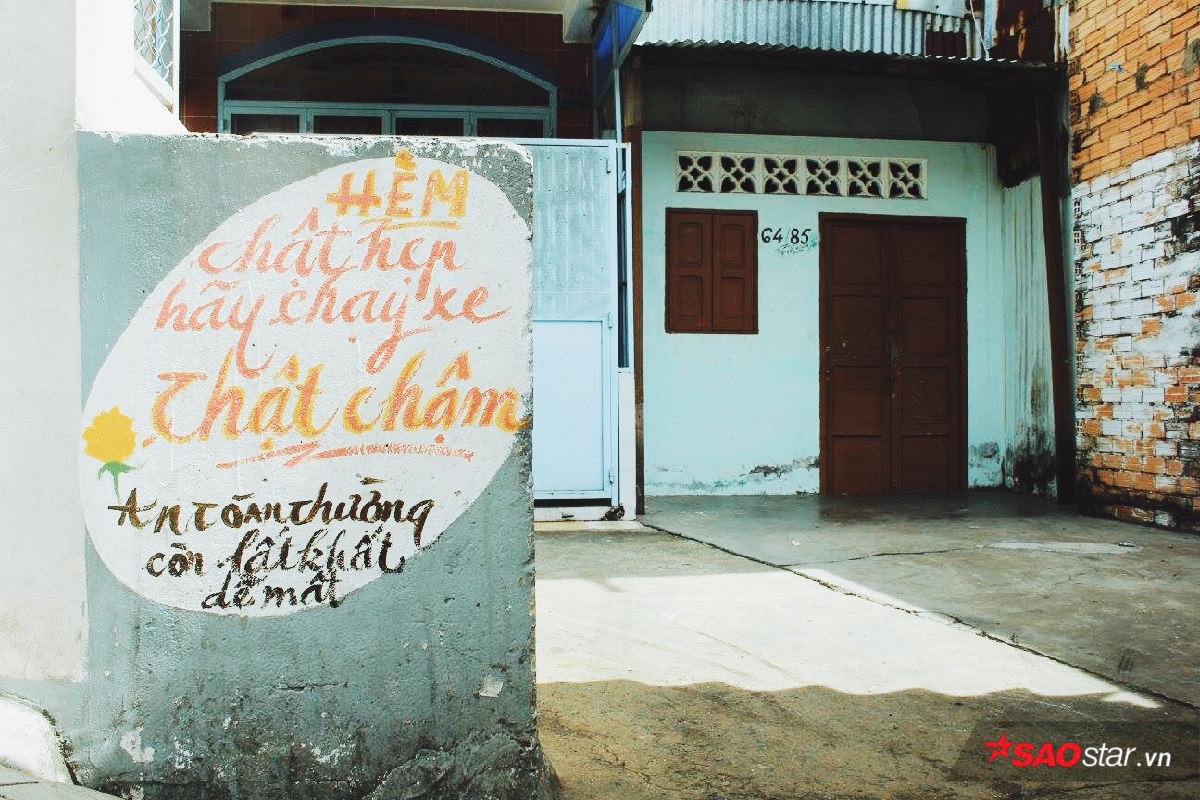 HẺM
chật hẹp
hãy chạy xe
Thật chậm
An toàn thường
còn lất khất
dễ mất
64/85
SAOstar.vn